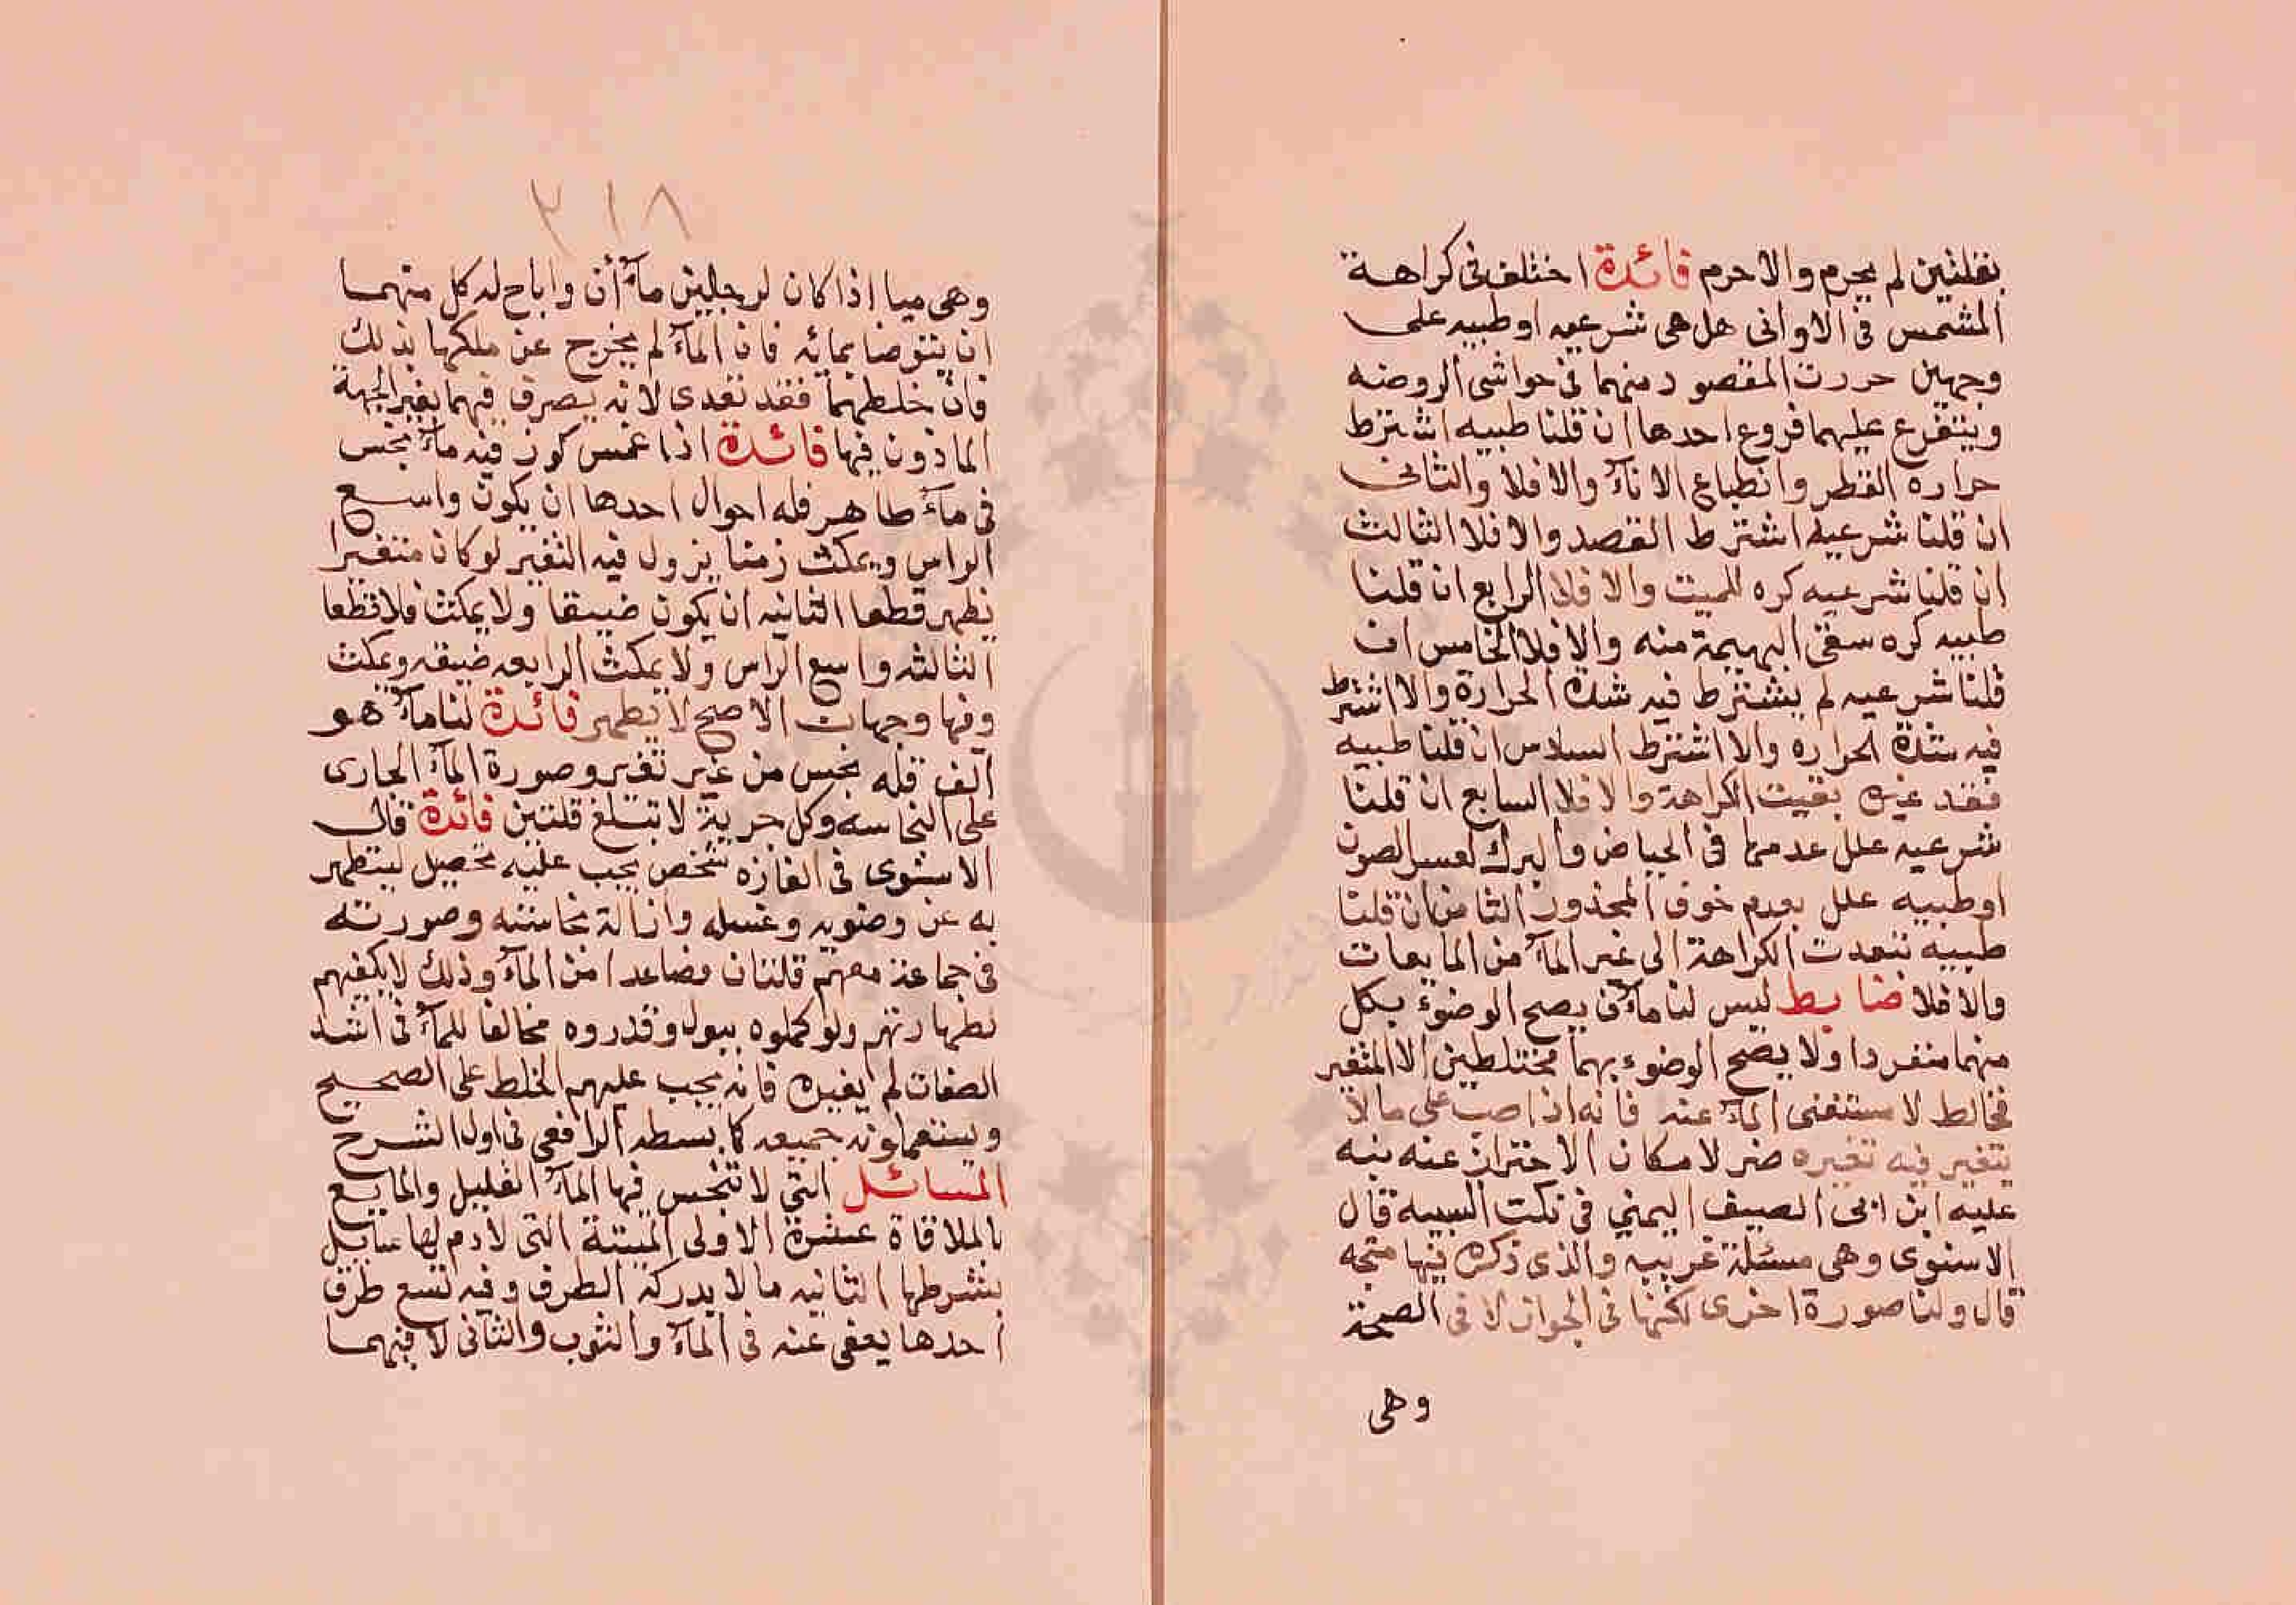 بقلتين لم يحرم والا حرم فائدة اختلف فى كراهة
المشمس فى الاوانى هل هى شرعيه او طبيه على
وجهين حررت المقصود منهما فى حواشى الروضه
ويتفرع عليهما فروع احدها ان قلنا طبيه اشترط
حراره القطر وانطباع الاناء والا فلا والثانى
ان قلنا شرعيه اشترط القصد والا فلا الثالث
ان قلنا شرعيه كره للميت والا فلا الرابع ان قلنا
طبيه كره سقى البهيمة منه والا فلا الخامس ان
قلنا شرعيه لم يشترط فيه شدة الحرارة والا اشترط
فيه شدة الحراره والا اشترط السادس ان قلنا طبيه
فقد غيره بقيت الكراهة والا فلا السابع ان قلنا
شرعيه علل عدمها فى الحياض والبرك لعسر الصون
او طبيه علل بعدم خوف المحذور الثامن ان قلنا
طبيه تعدت الكراهة الى غير الماء من المايعات
والا فلا ضابط ليس لنا ماءان يصح الوضوء بكل
منهما منفردا ولا يصح الوضوء بهما مختلطين الا المتغير
بمخالط لا مستغنى الماء عنه فانه اذا صب على مالا
يتغير فيه تغيره ضر لامكان الاحتراز عنه نبه
عليه ابن ابى الصيف اليمني فى نكت التنبيه قال
الاسنوى وهى مسئلة غريبه والذى ذكره فيها متجه
قال ولنا صورة اخرى لكنها فى الجواز لا فى الصحة
وهى
٣١٨
وهى ميا اذا كان لرجلين ماءان واباح له كل منهما
ان يتوضا بمائه فان الماء لم يخرج عن ملكها بذلك
فان خلطهما فقد تعدى لانه يصرف فيهما بغير الجهة
الماذون فيها فائدة اذا غمس كوز فيه ماء نجس
فى ماء طاهر فله احوال احدها ان يكون واسع
الراس ويمكث زمنا يزول فيه التغير لو كان متغيرا
تطهر قطعا الثانيه ان يكون ضيقا ولا يمكث فلا قطعا
الثالثه واسع الراس ولا يمكث الرابعه ضيقه ويمكث
وفيها وجهان الاصح لا تطهر فائدة لنا ماء هو
الف قله نجس من غير تغير وصورة الماء الجارى
على النجاسه وكل جرية لا تبتلغ قلتين فائدة قال
الاسنوى فى الغازه شخص يجب عليه تحصيل ليتطهر
به عن وضويه وغسله وازالة نجاسته وصورته
فى جماعة معهم قلتان فصاعدا من الماء وذلك لا يكفيهم
لطهارتهم ولو كملوه ببول وقدروه مخالفا للماء فى اشد
الصفات لم يغيره فانه يجب عليهم الخلط على الصحيح
ويستعملونه جميعه كما بسطه الرافعى فى اول الشرح
المسائل التى لا تنجس فيها الماء القليل والمايع
بالملاقاة عشرة الاولى الميتة التى لا دم لها سايل
بشرطها الثانيه ما لا يدركه الطرف وفيه تسع طرق
احدها يعفى عنه فى الماء والثوب والثانى لا فيهما